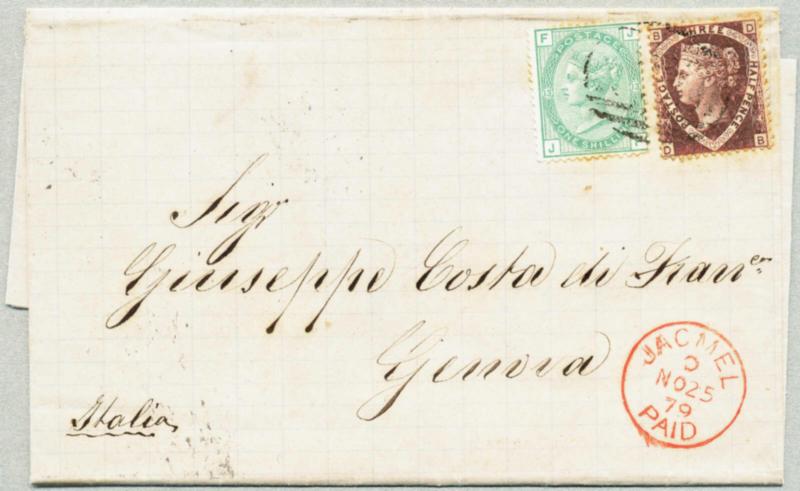 F J
POSTAGE
ONE SHILL
J
B D
THREE HALF PENCE
POSTAGE
D B
Sigr
Giuseppe Costa di Fran.co
Genova
Italia
JACMEL
NO 25
79
PAID